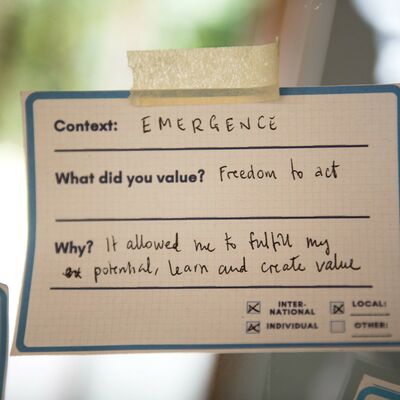 Context: EMERGENCE
What did you value? Freedom to act
Why? It allowed me to fulfill my
potential, learn and create value
INTER-NATIONAL LOCAL:
INDIVIDUAL OTHER: